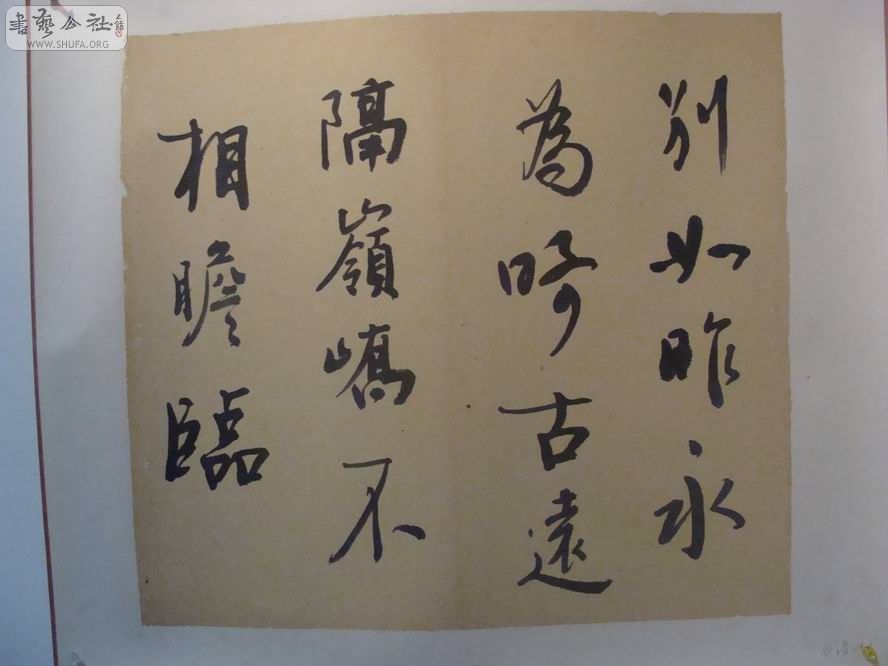 書藝公社
WWW.SHUFA.ORG
別如昨永
為古遠
隔嶺嶠不
相瞻臨